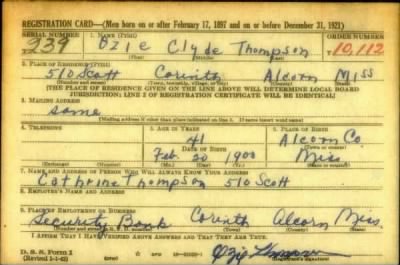 REGISTRATION CARD—(Men born on or after February 17, 1897 and on or before December 31, 1921)
SERIAL NUMBER 1. NAME (Print) ORDER NUMBER
239 Ozie Clyde Thompson 10,112
(First) (Middle) (Last)
2. PLACE OF RESIDENCE (Print)
510 Scott Corinth Alcorn Miss
(Number and street) (Town, township, village, or city) (County) (State)
[THE PLACE OF RESIDENCE GIVEN ON THE LINE ABOVE WILL DETERMINE LOCAL BOARD
JURISDICTION; LINE 2 OF REGISTRATION CERTIFICATE WILL BE IDENTICAL]
3. MAILING ADDRESS
Same
[Mailing address if other than place indicated on line 2. If same insert word same]
4. TELEPHONE 5. AGE IN YEARS 6. PLACE OF BIRTH
41 Alcorn Co.
DATE OF BIRTH
Feb. 20 1900 Miss
7. NAME AND ADDRESS OF PERSON WHO WILL ALWAYS KNOW YOUR ADDRESS
Cothrine Thompson 510 Scott
8. EMPLOYER'S NAME AND ADDRESS
9. PLACE OF EMPLOYMENT OR BUSINESS
Security Bank Corinth Alcorn Miss.
I AFFIRM THAT I HAVE VERIFIED ABOVE ANSWERS AND THAT THEY ARE TRUE.
D. S. S. Form 1
(Revised 1-1-42) Ozie Thompson